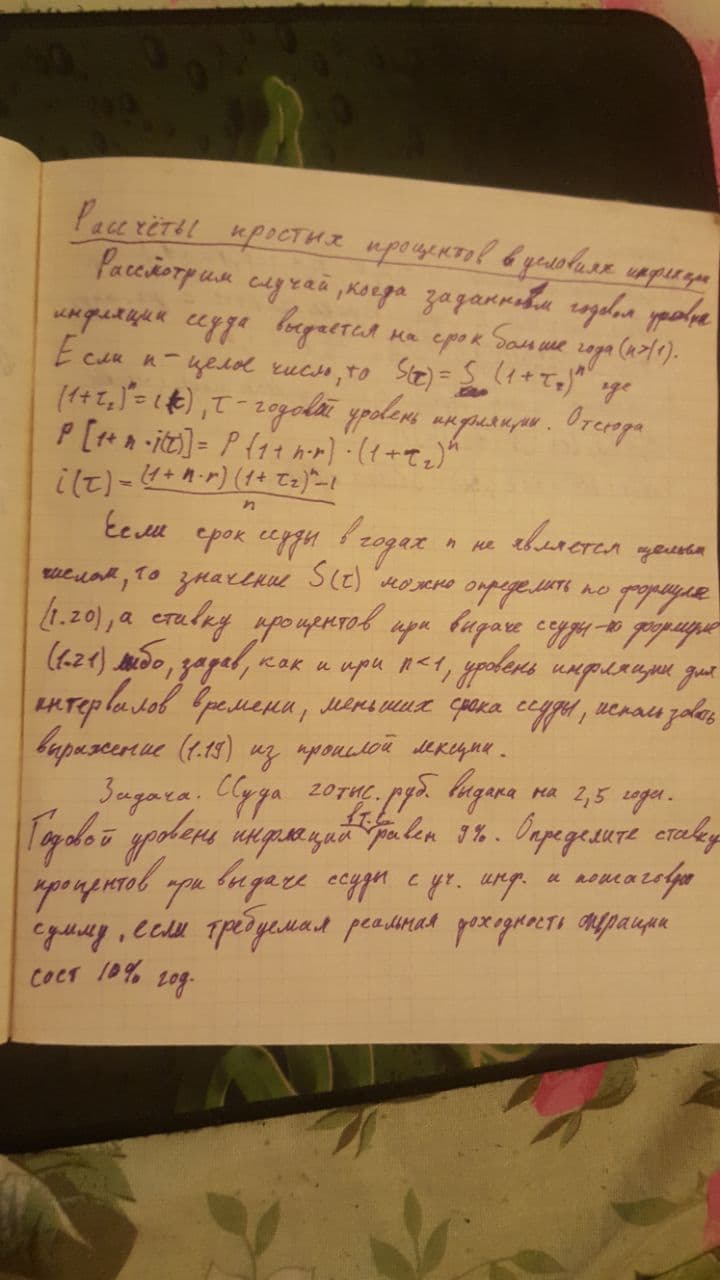 Рассчёты простых процентов в условиях инфляции
Рассмотрим случай, когда заданном годовом уровне
инфляции ссуда выдаётся на срок больше года (n>1).
Если n – целое число, то S(τ) = S (1+τ₂)ⁿ где
(1+τ₂)ⁿ = , τ – годовой уровень инфляции. Отсюда
P[1+n·i(τ)] = P(1+n·r)·(1+τ₂)ⁿ
i(τ) = (1+n·r)(1+τ₂)ⁿ–1 / n
Если срок ссуды в годах n не является целым
числом, то значение S(τ) можно определить по формуле
(1.20), а ставку процентов при выдаче ссуды – по формуле
(1.21) либо, задав, как и при n<1, уровень инфляции для
интервалов времени, меньших срока ссуды, использовать
выражение (1.19) из прошлой лекции.
Задача. Ссуда 20 тыс. руб. выдана на 2,5 года.
Годовой уровень инфляции равен 9%. Определите ставку
процентов при выдаче ссуды с уч. инф. и
сумму, если требуемая реальная доходность операции
сост 10% год.